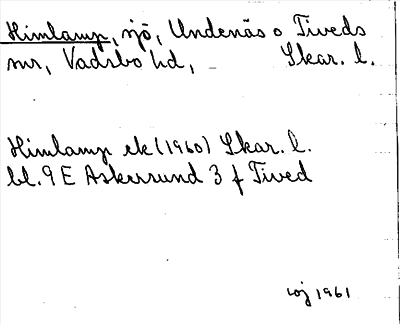 Himlamp, sjö, Undenäs o Tiveds
snr, Vadsbo hd, Skar. l.
Himlamp ek (1960) Skar. l.
bl. 9 E Askersund 3 f Tived
woj 1961